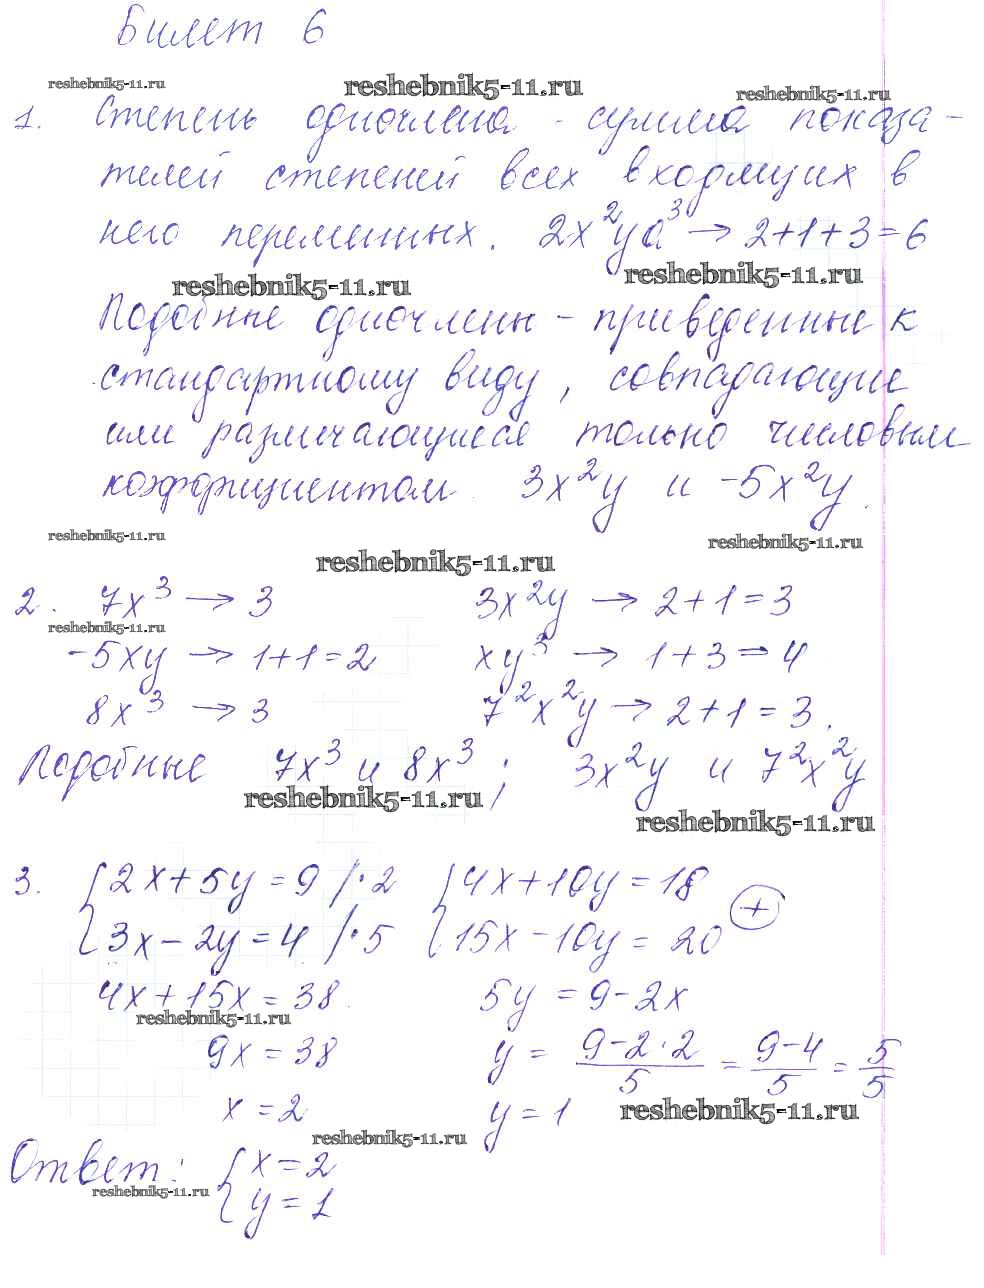 Билет 6
reshebnik5-11.ru reshebnik5-11.ru reshebnik5-11.ru
1. Степень одночлена - сумма показа-
телей степеней всех входящих в
него переменных. 2x²ya³ → 2+1+3=6
reshebnik5-11.ru reshebnik5-11.ru
Подобные одночлены - приведенные к
стандартному виду, совпадающие
или различающиеся только числовым
коэффициентом. 3x²y и -5x²y.
reshebnik5-11.ru reshebnik5-11.ru reshebnik5-11.ru
2. 7x³ → 3 3x²y → 2+1=3
reshebnik5-11.ru
-5xy → 1+1=2 xy³ → 1+3=4
8x³ → 3 7²x²y → 2+1=3.
Подобные 7x³ и 8x³; 3x²y и 7²x²y
reshebnik5-11.ru reshebnik5-11.ru
3. {2x+5y=9 /·2 {4x+10y=18
{3x-2y=4 /·5 {15x-10y=20 +
4x+15x=38 5y=9-2x
reshebnik5-11.ru
9x=38 y= (9-2·2)/5 = (9-4)/5 = 5/5
x=2 y=1
reshebnik5-11.ru reshebnik5-11.ru
Ответ: {x=2
reshebnik5-11.ru
{y=1